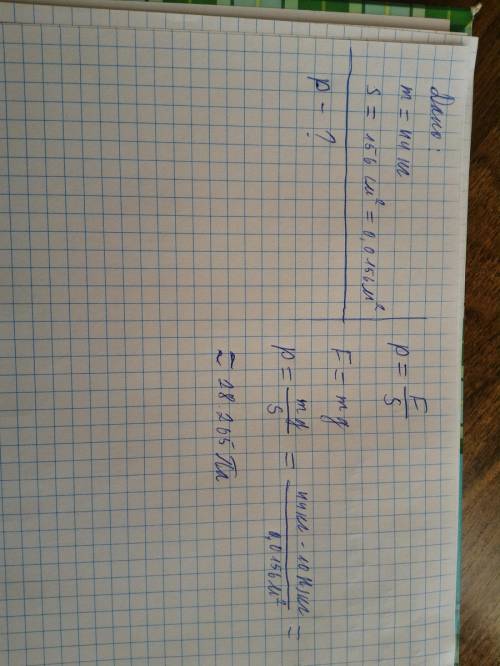 Дано:
m = 44 кг
S = 156 см² = 0,0156 м²
p - ?
p = F/S
F = mg
p = mg/S = 44 кг · 10 Н/кг / 0,0156 м² =
≈ 28 205 Па